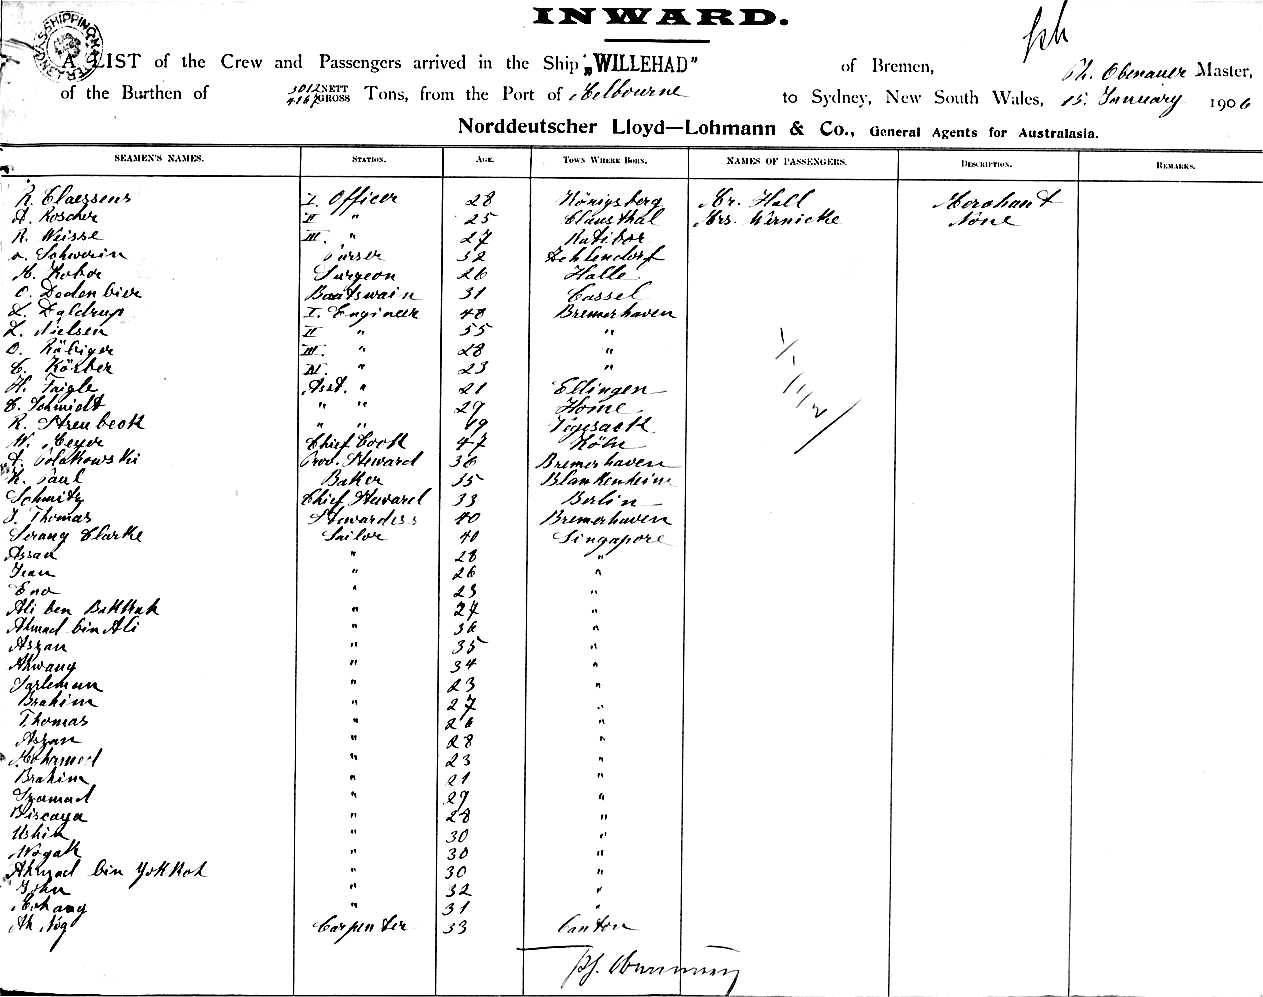 INWARD.
A LIST of the Crew and Passengers arrived in the Ship „WILLEHAD" of Bremen, Ph. Obenauer Master,
of the Burthen of 3012 NETT 4167 GROSS Tons, from the Port of Melbourne to Sydney, New South Wales, 15. January 1906
Norddeutscher Lloyd—Lohmann & Co., General Agents for Australasia.
SEAMEN'S NAMES. STATION. AGE. TOWN WHERE BORN. NAMES OF PASSENGERS. DESCRIPTION. REMARKS.
R. Claessens I. Officer 28 Königsberg Mr. Hall Merchant
A. Roscher II " 25 Clausthal Mrs. Wernicke None
R. Weisse III. " 27 Ratibor
Schwerin Purser 32 Zehlendorf
H. Kober Surgeon 26 Halle
O. Dodenbier Boatswain 31 Cassel
L. Dyldrup I. Engineer 48 Bremerhaven
L. Nielsen II " 55 "
O. Räbiger III. " 28 "
C. Körber IV. " 23 "
H. Taigle Asst. " 21 Ellingen
C. Schmidt " " 29 Home
R. Streubeck " " 19 Vegesack
W. Meyer Chief Cook 47 Köln
A. Polakowski Prov. Steward 36 Bremerhaven
K. Paul Baker 35 Blankenheim
Schmitz Chief Steward 33 Berlin
J. Thomas Stewardess 40 Bremerhaven
Serang Clarke Sailor 40 Singapore
Assan " 28 "
" 26 "
Eno " 23 "
Ali ben Bakkak " 27 "
Ahmad bin Ali " 36 "
Aszan " 35 "
Akwang " 34 "
Sarleman " 23 "
Brahim " 27 "
Thomas " 26 "
Aszan " 28 "
Mohamed " 23 "
Brahim " 21 "
Szamad " 29 "
Biscaya " 28 "
Ushin " 30 "
Wogak " 30 "
Ahmad bin Yokkok " 30 "
John " 32 "
" 31 "
Ah Nog Carpenter 33 Canton